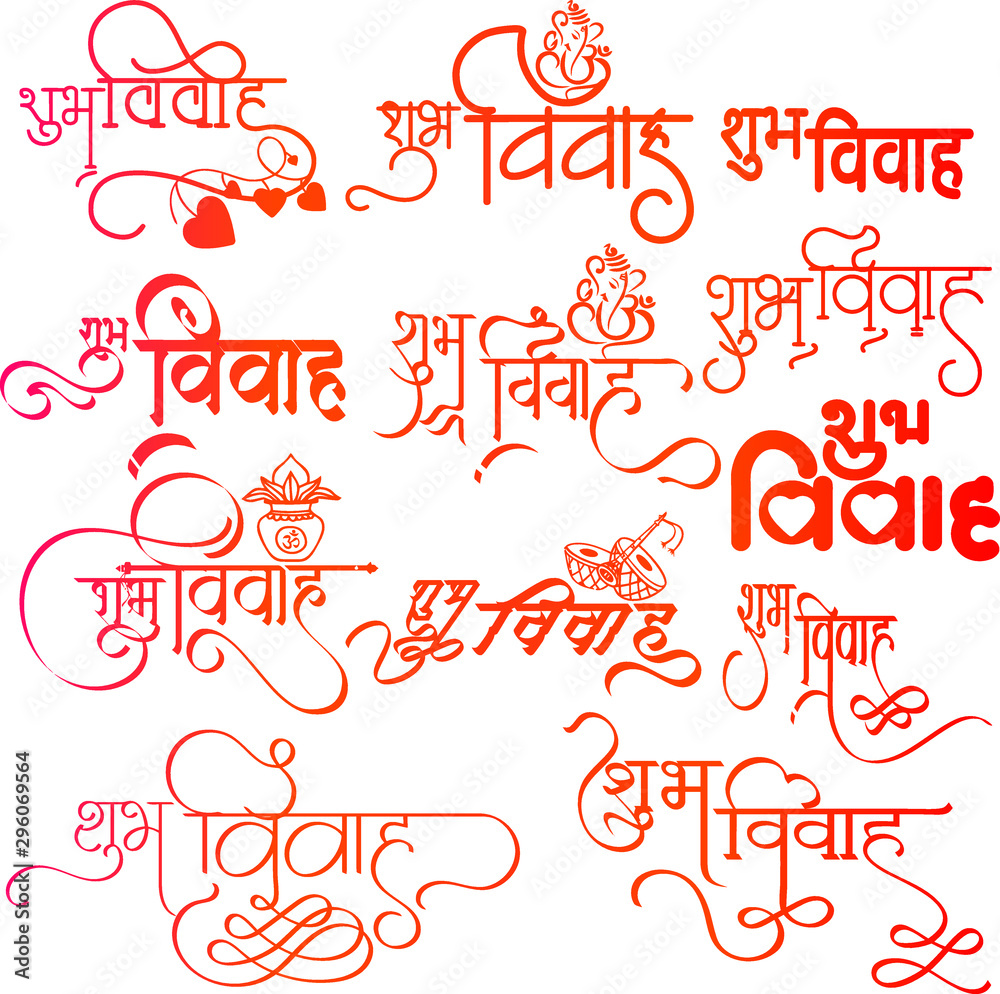 शुभ विवाह
शुभ विवाह
शुभ विवाह
शुभ विवाह
शुभ विवाह
शुभ विवाह
शुभ
विवाह
ॐ
शुभ विवाह
शुभ विवाह
शुभ विवाह
शुभ विवाह
शुभ विवाह
Adobe Stock | #296069564